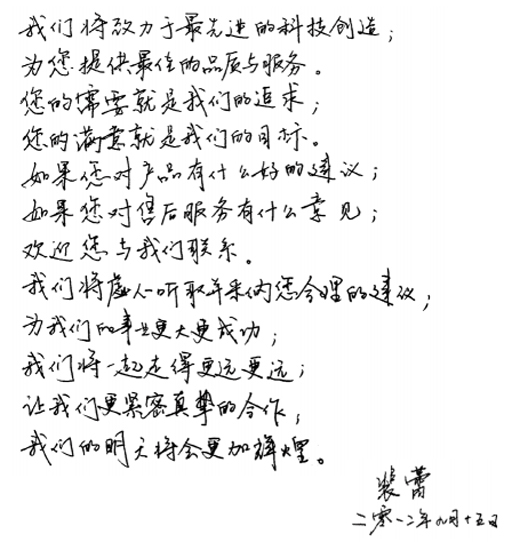 我们将致力于最先进的科技创造；
为您提供最佳的品质与服务。
您的需要就是我们的追求；
您的满意就是我们的目标。
如果您对产品有什么好的建议；
如果您对售后服务有什么意见；
欢迎您与我们联系。
我们将虚心听取并采纳您合理的建议；
为我们的事业更大更成功；
我们将一起走得更远更远；
让我们更紧密真挚的合作；
我们的明天将会更加辉煌。
裴蕾
二零一二年九月十五日